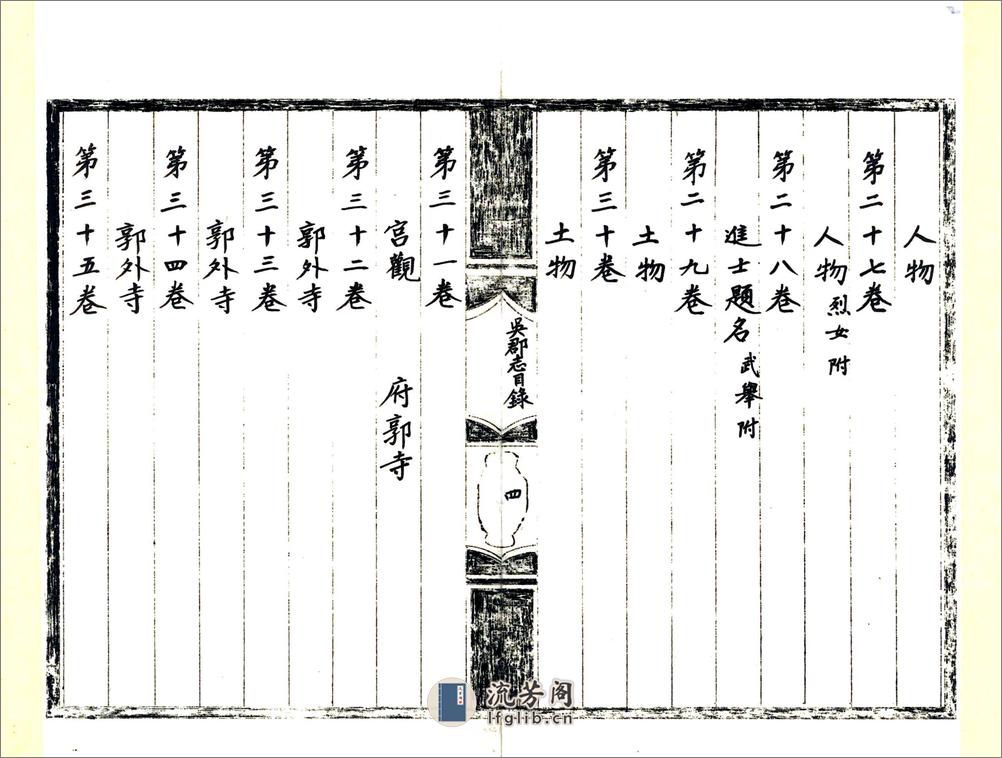 人物
第二十七卷
人物 烈女附
第二十八卷
進士題名 武舉附
第二十九卷
土物
第三十卷
土物
吳郡志目錄
四
第三十一卷
宮觀 府郭寺
第三十二卷
郭外寺
第三十三卷
郭外寺
第三十四卷
郭外寺
第三十五卷
流芳阁
lfglib.cn